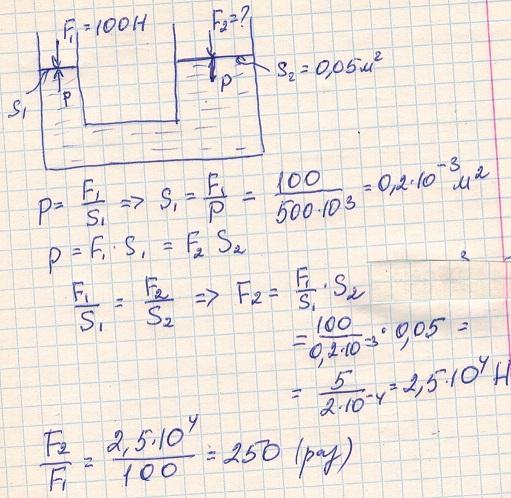 F₁ = 100Н
F₂ = ?
S₁
P
P
S₂ = 0,05 м²
P = F₁/S₁ => S₁ = F₁/P = 100/500·10³ = 0,2·10⁻³ м²
P = F₁·S₁ = F₂ S₂
F₁/S₁ = F₂/S₂ => F₂ = F₁/S₁ · S₂
= 100/0,2·10⁻³ · 0,05 =
= 5/2·10⁻⁴ = 2,5·10⁴ Н
F₂/F₁ = 2,5·10⁴/100 = 250 (раз)